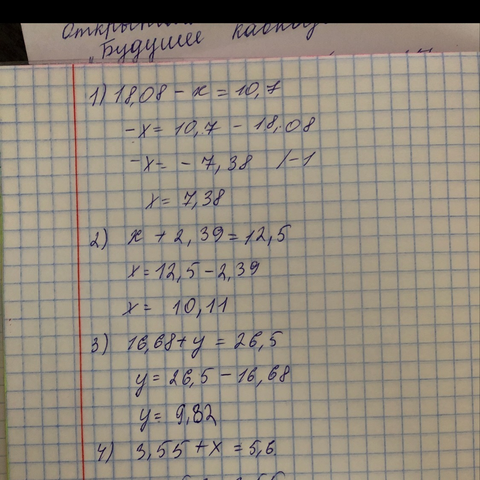 Открытый
"Будущее
1) 18,08 - x = 10,7
-x = 10,7 - 18,08
-x = - 7,38 /-1
x = 7,38
2) x + 2,39 = 12,5
x = 12,5 - 2,39
x = 10,11
3) 16,68 + y = 26,5
y = 26,5 - 16,68
y = 9,82
4) 3,55 + x = 5,6